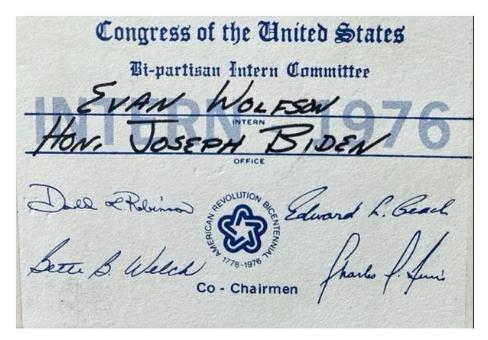 Congress of the United States
Bi-partisan Intern Committee
INTERN 1976
EVAN WOLFSON
INTERN
HON. JOSEPH BIDEN
OFFICE
Edward L. Beach
AMERICAN REVOLUTION BICENTENNIAL
1776-1976
Bette B. Welch
Co - Chairmen